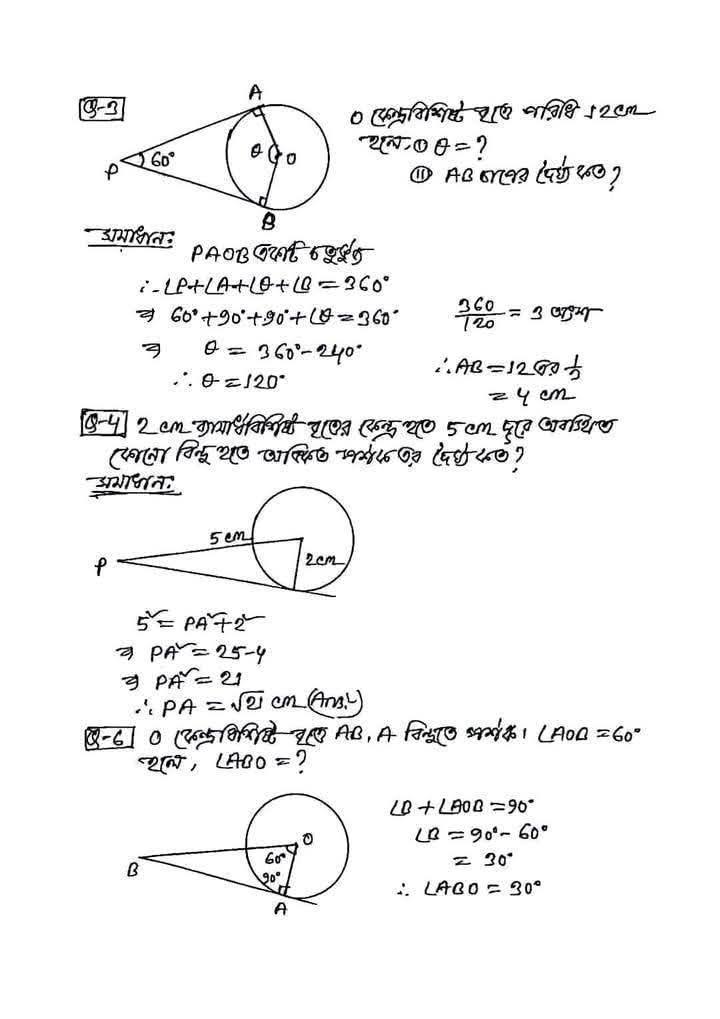 Q-3
A
O কেন্দ্রবিশিষ্ট বৃত্তে পরিধি 12cm
হলে, ① θ = ?
60°
θ
O
P
⑪ AB চাপের দৈর্ঘ্য কত?
B
সমাধান:
PAOB একটি চতুর্ভুজ
∴ ∠P+∠A+∠θ+∠B = 360°
⇒ 60°+90°+90°+∠θ = 360°
360/120 = 3 অংশ
⇒ θ = 360° - 240°
∴ θ = 120°
∴ AB = 12 এর 1/3
= 4 cm
Q-4 2 cm ব্যাসার্ধবিশিষ্ট বৃত্তের কেন্দ্র হতে 5 cm দূরে অবস্থিত
কোনো বিন্দু হতে অংকিত স্পর্শকের দৈর্ঘ্য কত?
সমাধান:
5 cm
2cm
P
5² = PA² + 2²
⇒ PA² = 25-4
⇒ PA² = 21
∴ PA = √21 cm (Ans:)
Q-6 O কেন্দ্রবিশিষ্ট বৃত্তে AB, A বিন্দুতে স্পর্শক। ∠AOB = 60°
হলে, ∠ABO = ?
∠B + ∠AOB = 90°
∠B = 90° - 60°
= 30°
∴ ∠ABO = 30°
O
60°
B
90°
A